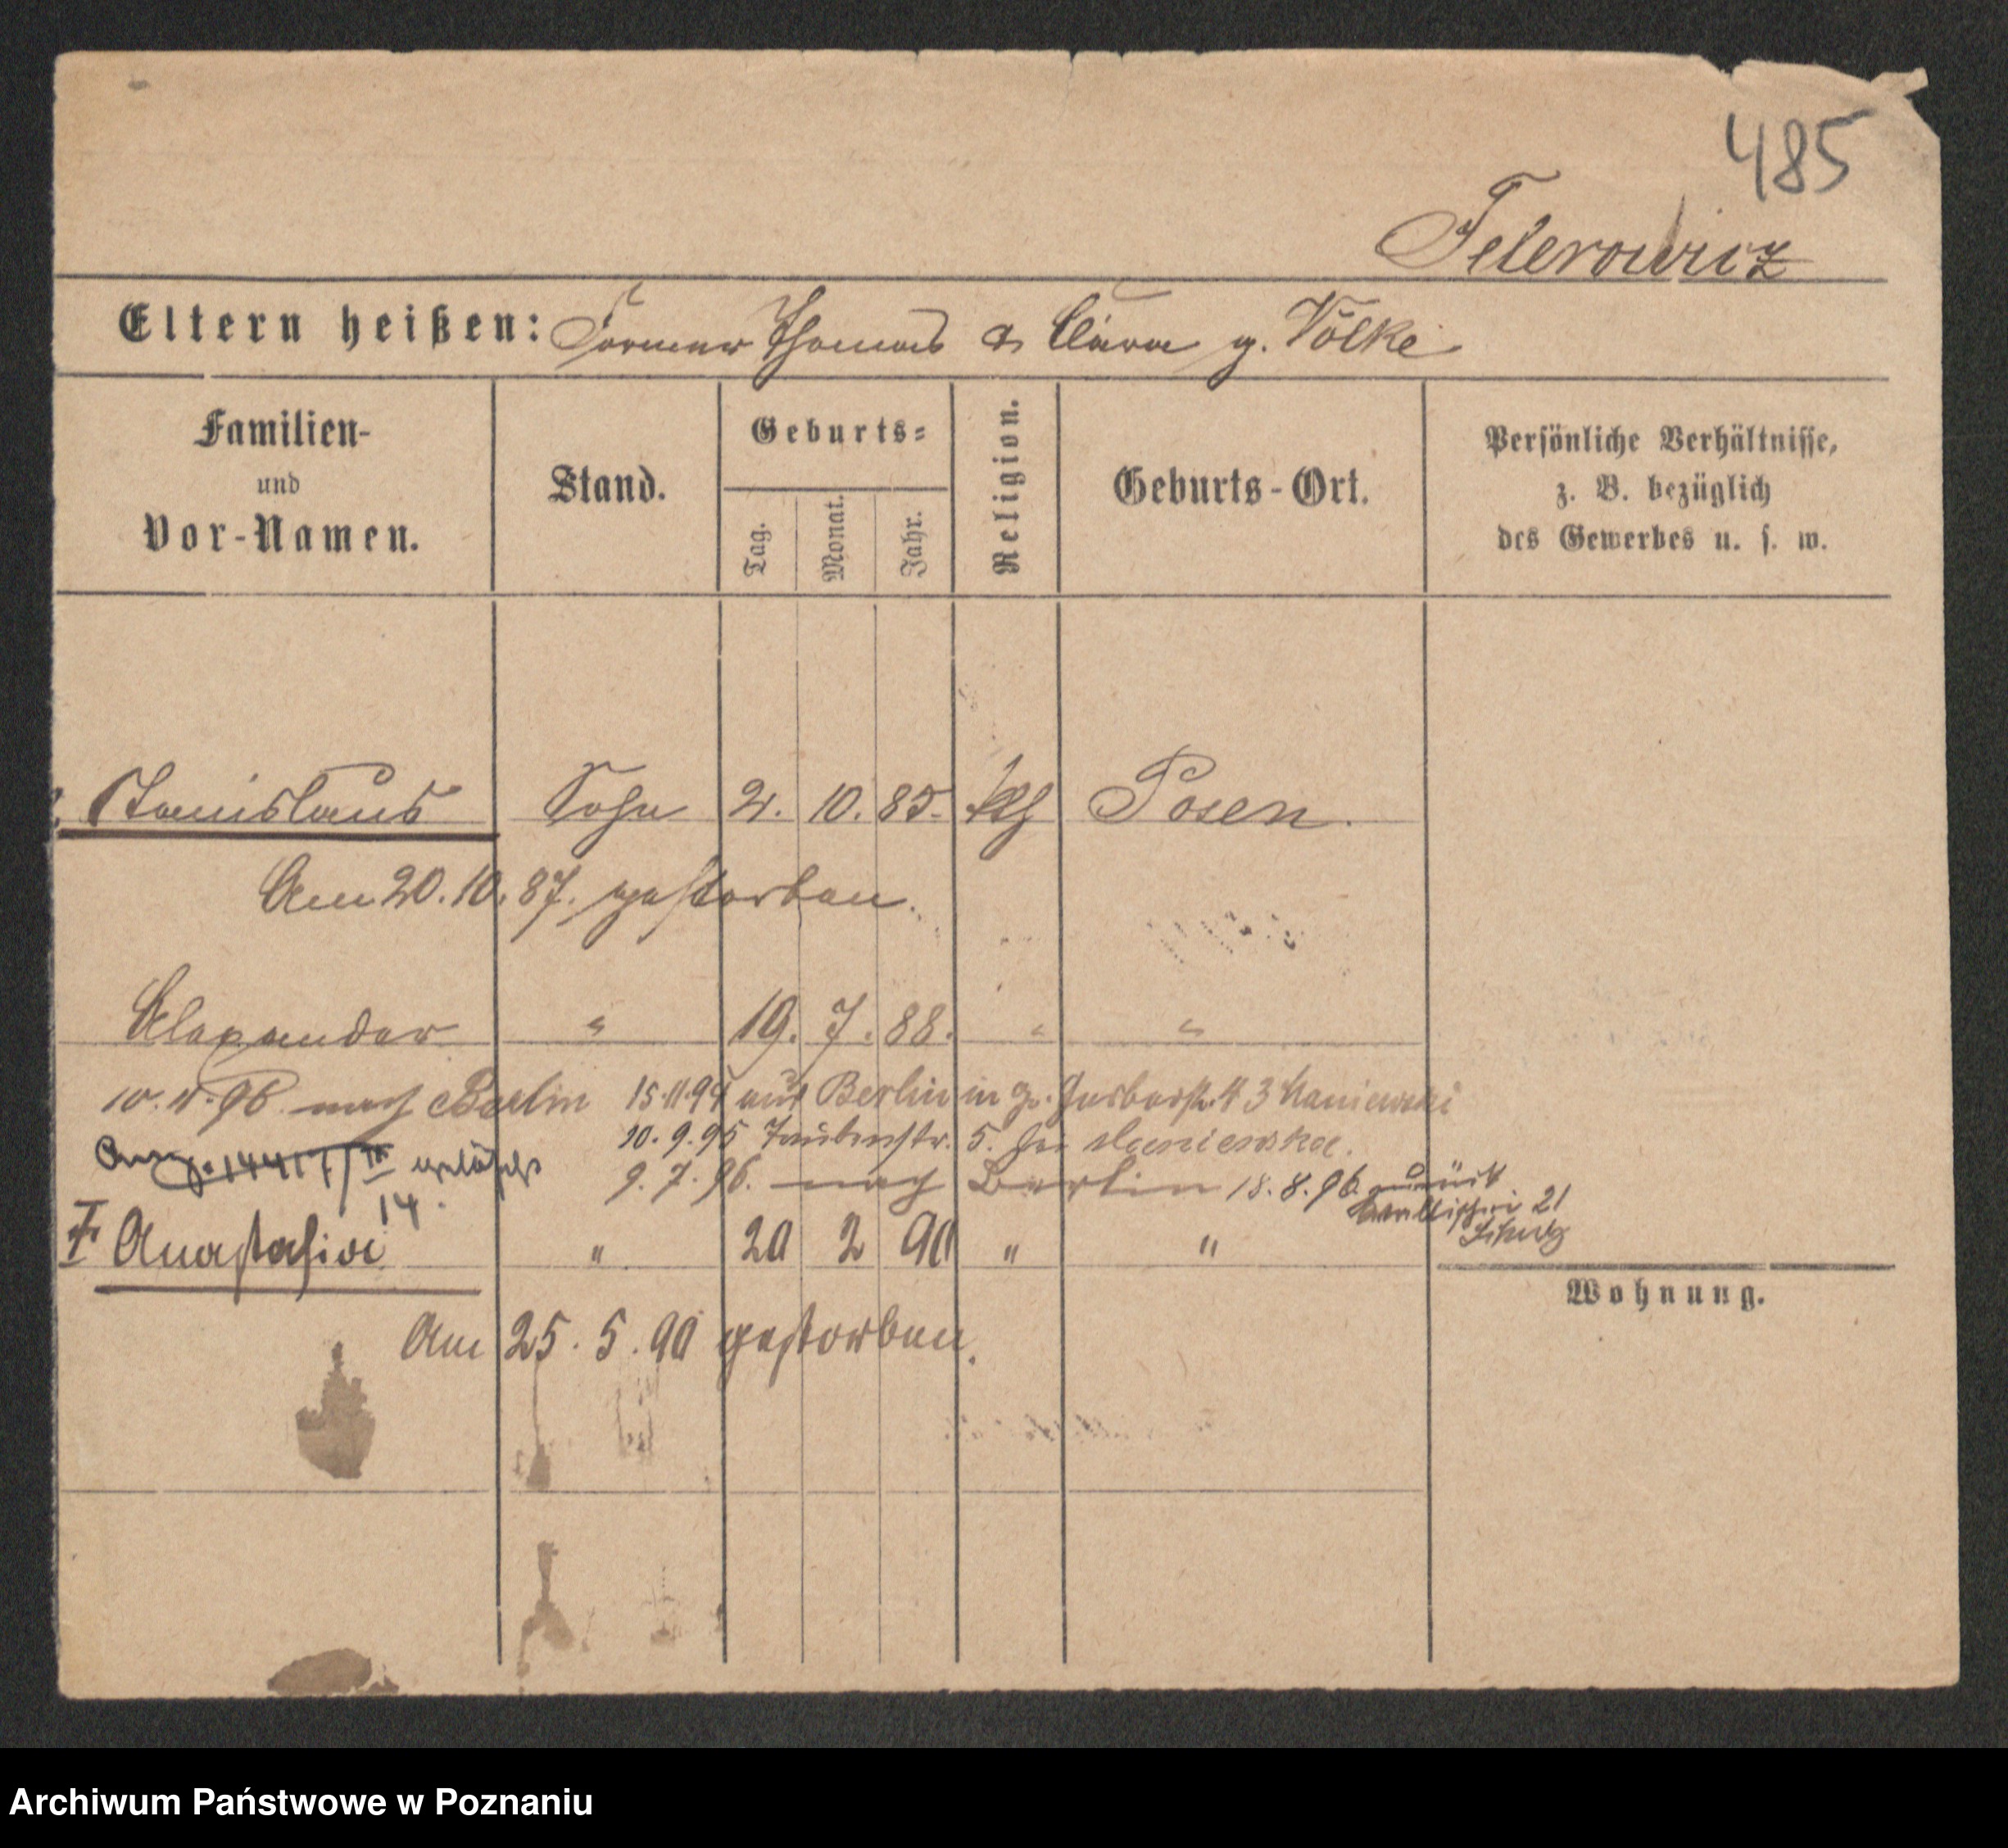 485
Felerowicz
Eltern heißen: Former Thomas & Clara g. Völke
Familien-
und
Vor-Namen.
Stand.
Geburts-
Tag.
Monat.
Jahr.
Religion.
Geburts-Ort.
Persönliche Verhältnisse,
z. B. bezüglich
des Gewerbes u. s. w.
Stanislaus Sohn 2. 10. 85. kth Posen.
Am 20. 10. 87. gestorben.
Alexander " 19. 7. 88. " "
10. 11. 96. nach Berlin 15.11.94 aus Berlin in gr. Gerberstr. 43 Maniewski
10. 9. 95 Taubenstr. 5. bei Maniewska.
gelöscht
9. 7. 96. nach Berlin 18. 8. 96. zurück
Wallischei 21
14.
Anastasia " 20 2 90 " "
Wohnung.
Am 25. 5. 90 gestorben.
Archiwum Państwowe w Poznaniu